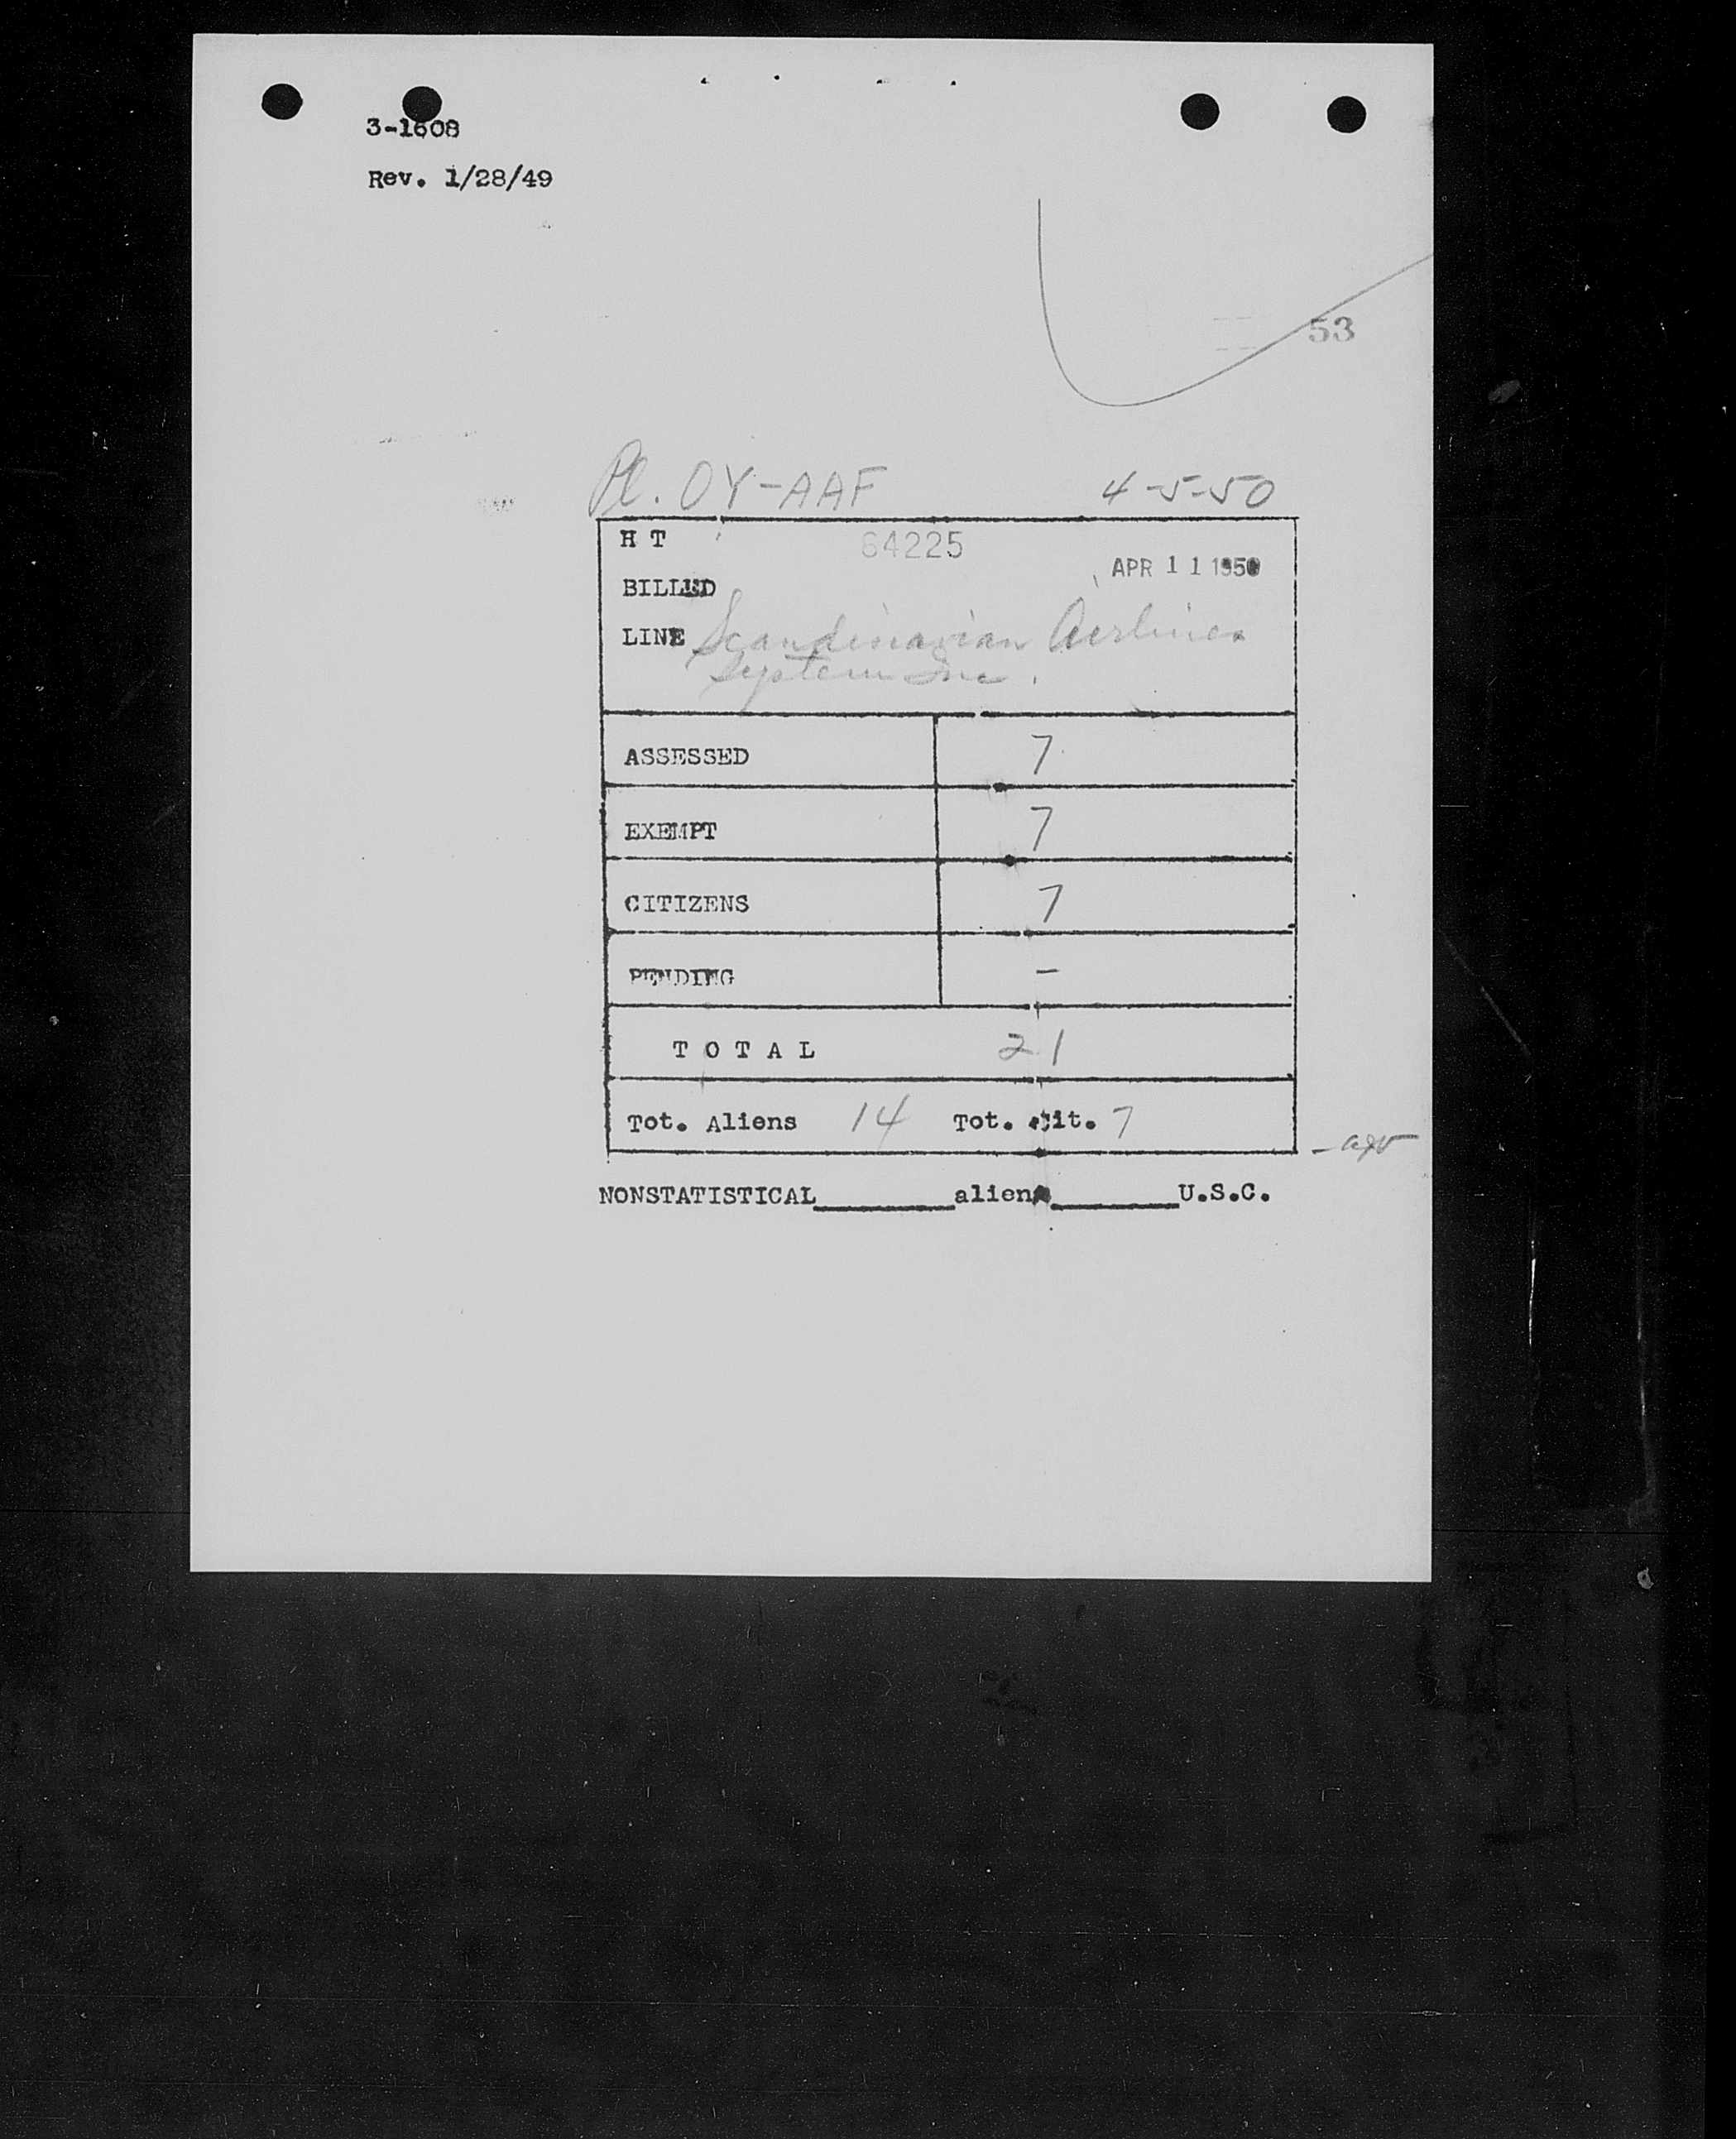 3-1608
Rev. 1/28/49
53
Pl. OY-AAF 4-5-50
H T 64225
APR 11 1950
BILLED
LINE Scandinavian Airlines
System Inc.
ASSESSED 7
EXEMPT 7
CITIZENS 7
PENDING -
T O T A L 21
Tot. Aliens 14 Tot. Cit. 7
NONSTATISTICAL________aliens________U.S.C.